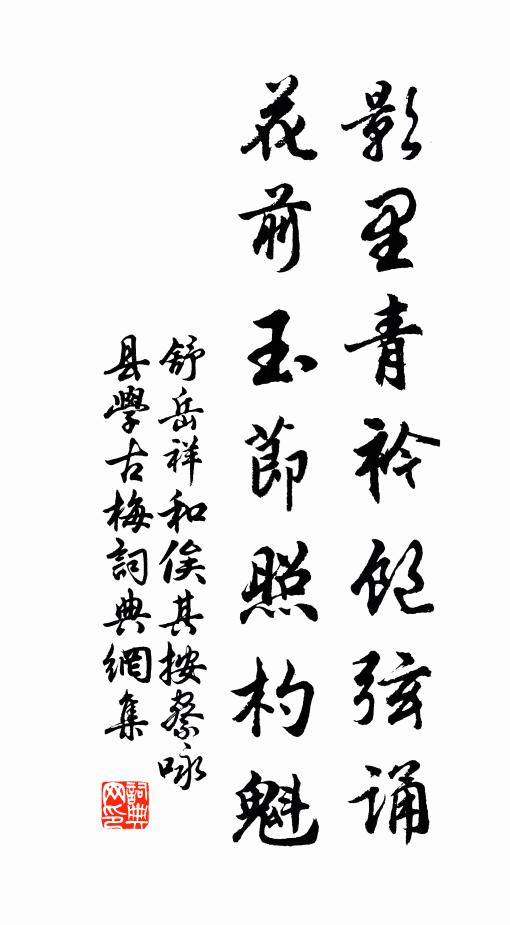 影里青衿饱弦诵
花前玉節照杓魁
舒岳祥和俟其按察咏
县學古梅詞典網集
詞典网印